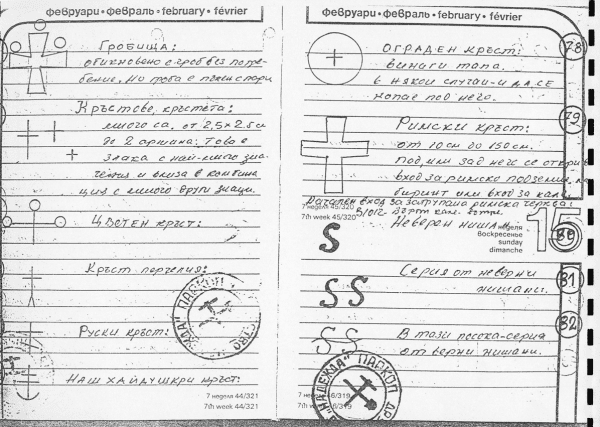 февруари • февраль • february • février
Гробища:
обикновено с гроб без погре-
бение. Но това е
Кръстове, кръстета:
много са. от 2,5 x 2.5 см
до 2 аршина. Това е
знака с най-много зна-
чения и влиза в комбина
ция с много други знаци.
Цветен кръст:
Кръст пергелия:
Руски кръст:
Наш хайдушки кръст:
7 неделя 44/321
7th week 44/321
февруари • февраль • february • février
ОГРАДЕН КРЪСТ:
винаги тапа.
в някои случаи-и да се
копае под него.
78
Римски кръст:
от 10 см до 150 см.
под, или зад него се открив
вход за римско подземие, ла-
биринт или вход за кале
79
Начален вход за затрупана римска черква!
7 неделя 45/320
7th week 45/320
Неверен нишан
15
неделя
воскресенье
sunday
dimanche
80
S
Серия от неверни
нишани.
81
SS
В тази посока-серия
от верни нишани.
82
SS
"НАДЕЖДА" ПАРКОП
7 неделя 46/319
7th week 46/319